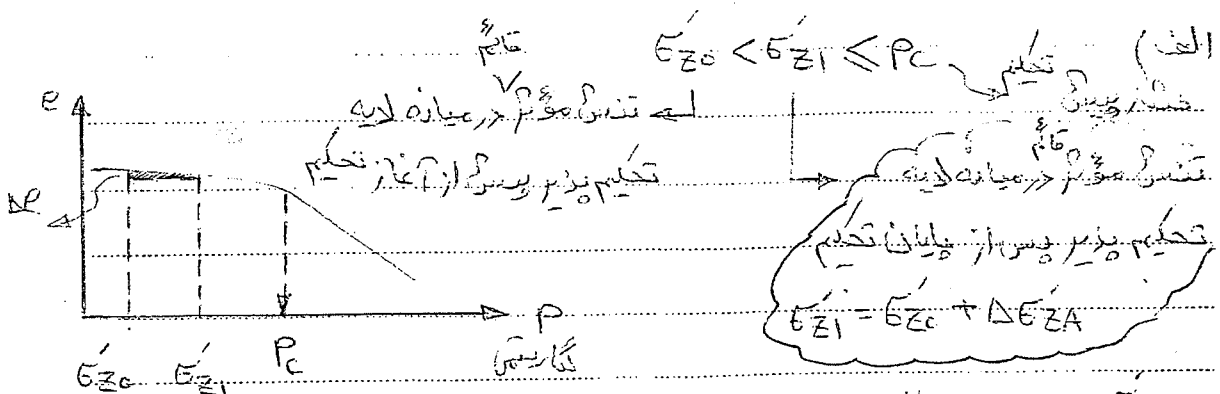 الف) σ'z0 < σ'z1 ≤ Pc
فشار پیش تحکیم
تنش مؤثر قائم در میانه لایه
تحکیم پذیر پیش از آغاز تحکیم
تنش مؤثر قائم در میانه لایه
تحکیم پذیر پس از پایان تحکیم
σ'z1 = σ'z0 + Δσ'zA
e
Δe
P
لگاریتمی
σ'z0 σ'z1 Pc